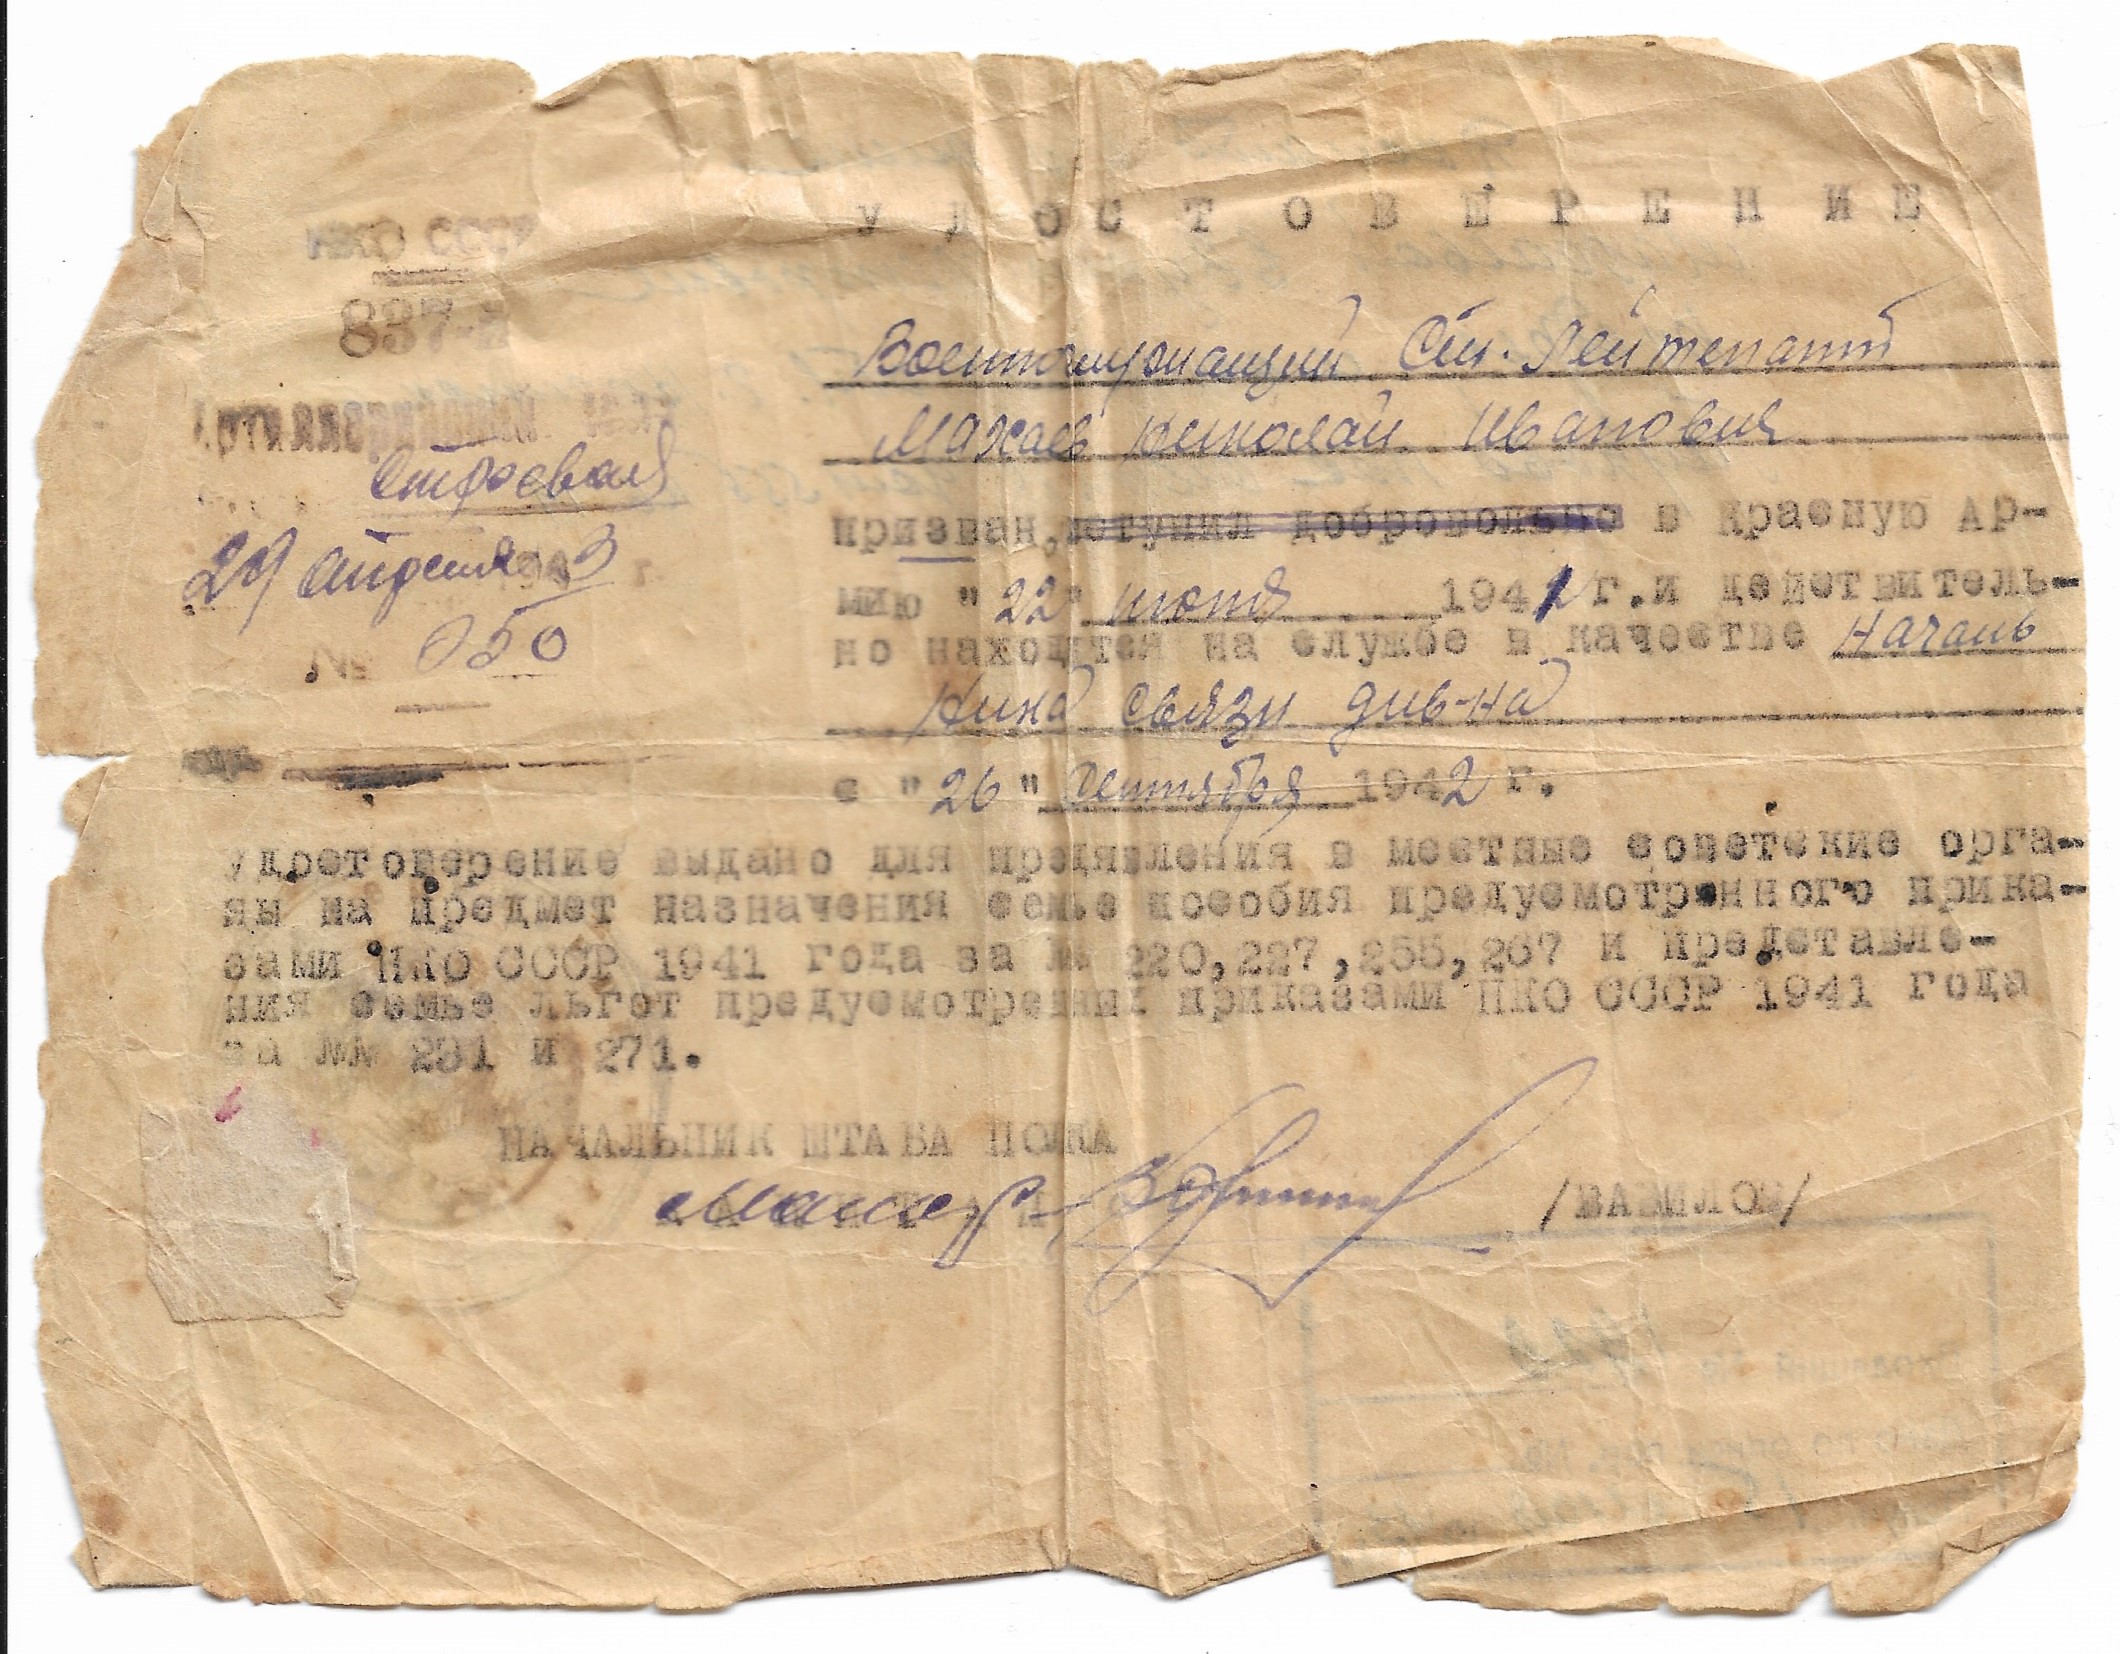 УДОСТОВЕРЕНИЕ
НКО СССР
837-й
Артиллерийский
Строевая
29 апреля 1943 г.
№ 050
Военнослужащий Ст. Лейтенант
Махаев Николай Иванович
призван, вступил добровольно в Красную Ар-
мию "22" июня 1941 г. и действитель-
но находится на службе в качестве Началь
ника связи див-на
с "26" Сентября 1942 г.
Удостоверение выдано для предявления в местные советские орга-
ны на предмет назначения семье пособия предусмотренного прика-
зами НКО СССР 1941 года за № 220,227,255,267 и представле-
ния семье льгот предусмотренных приказами НКО СССР 1941 года
за №№ 231 и 271.
НАЧАЛЬНИК ШТАБА ПОЛКА
Майор
/ВАВИЛОВ/